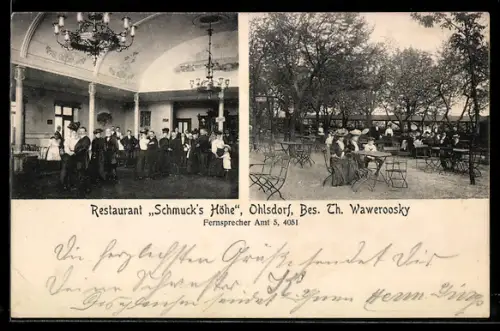 Restaurant „Schmuck's Höhe“, Ohlsdorf, Bes. Th. Waweroosky
Fernsprecher Amt 5, 4051
Die herzlichsten Grüße sendet Dir
Deine Schwester
Desgleichen sendet Ihnen Herm.